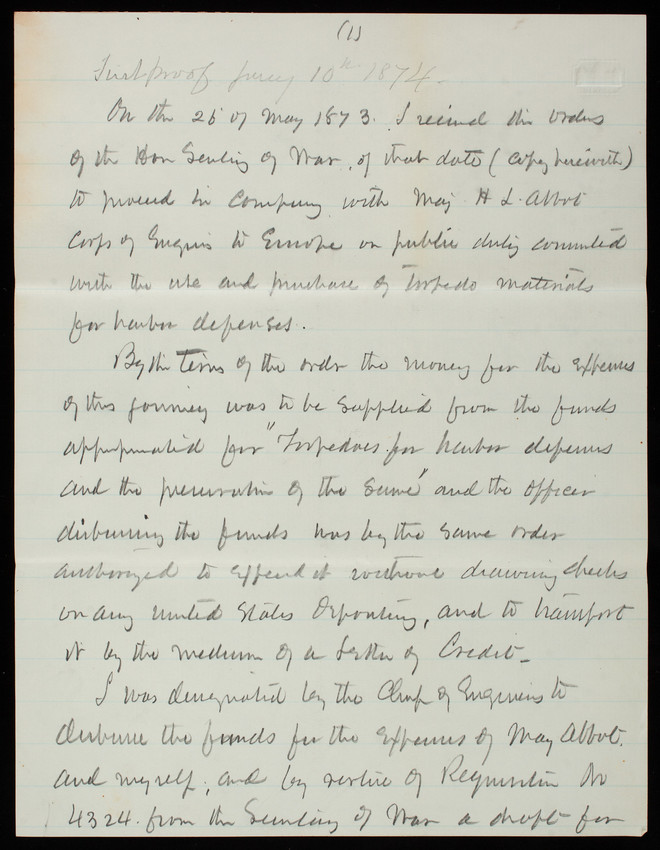 (1)
First proof Jany 10th 1874.
On the 25 of May 1873. I received the orders
of the Hon Secretary of War, of that date (copy herewith)
to proceed in company with Maj H L. Abbot
Corps of Engrs to Europe on public duty connected
with the use and purchase of Torpedo materials
for harbor defenses.
By the terms of the order the money for the expenses
of this journey was to be supplied from the funds
appropriated for "Torpedoes for harbor defenses
and the preservation of the same" and the officer
disbursing the funds was by the same order
authorized to expend it without drawing checks
on any United States Depositary, and to transport
it by the medium of a Letter of Credit.
I was designated by the Chief of Engineers to
disburse the funds for the expenses of Maj Abbot.
and myself, and by virtue of Requisition No
4324. from the Secretary of War a draft for